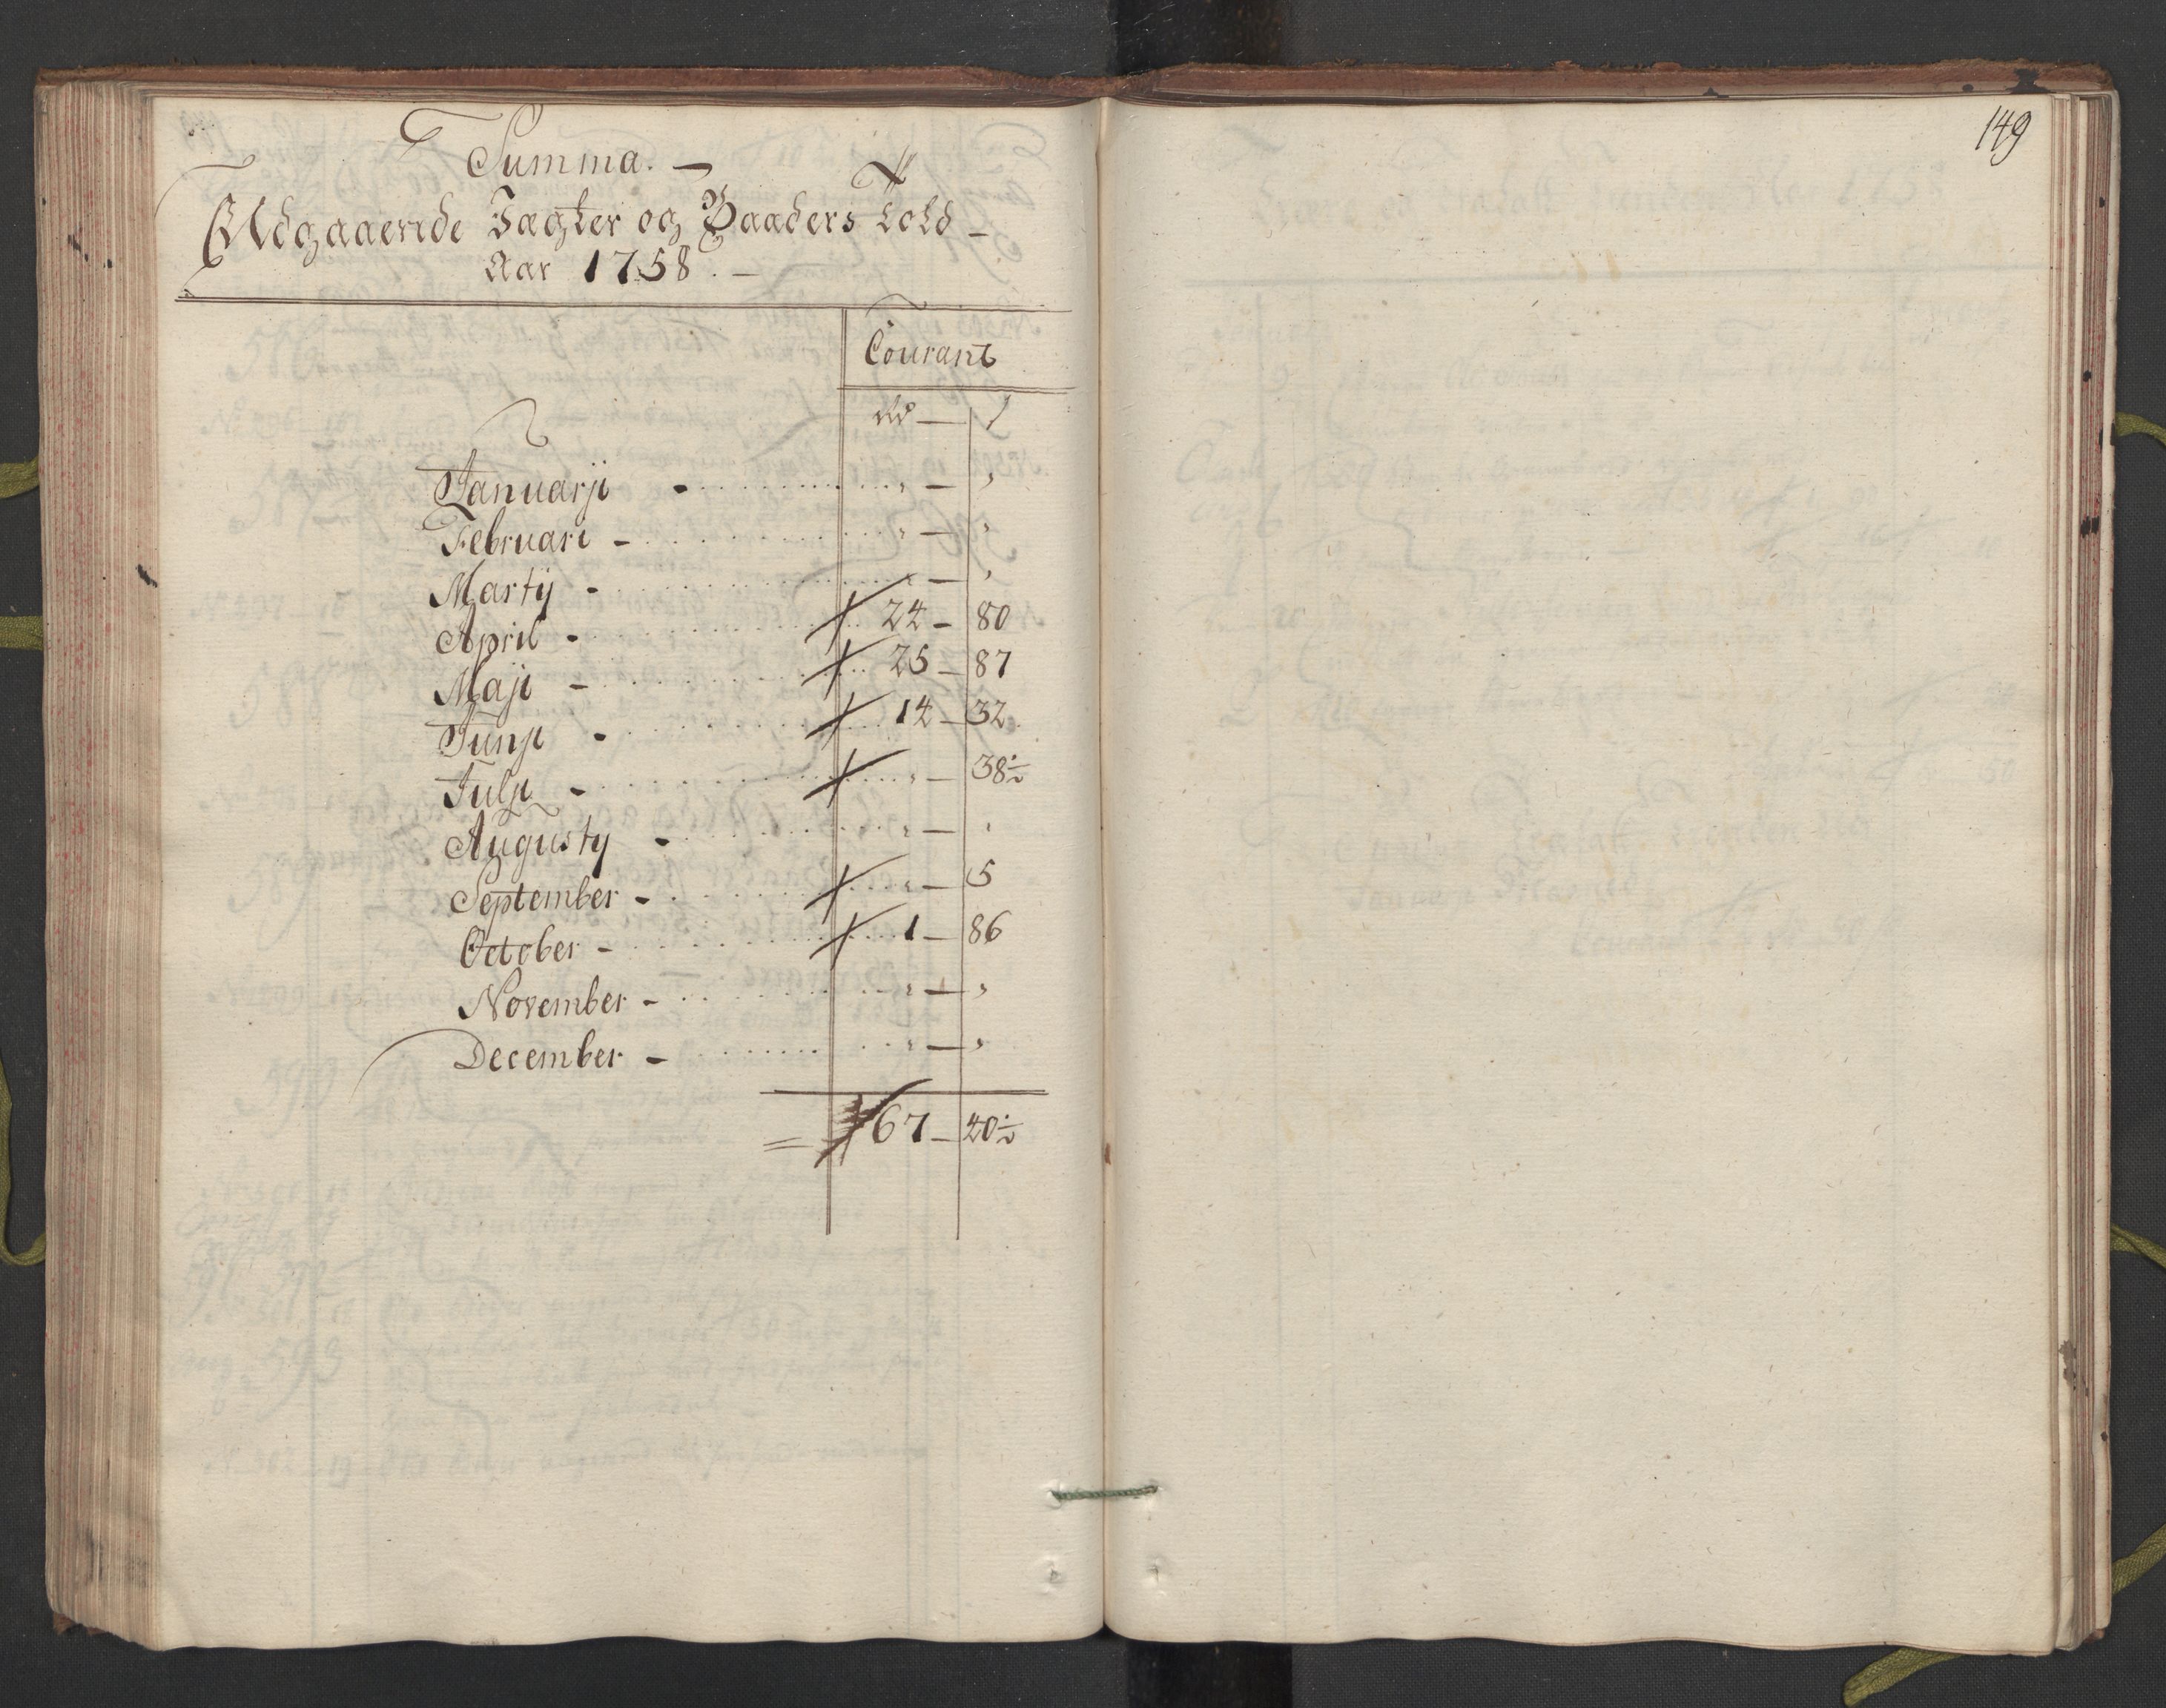 Summa. —
Udgaaende Jægter og Baaders Told —
Aar 1758. —
Courant
Rd — ß
Januarji - " — "
Februari - " — "
Martij - " — "
April - 24 — 80
Maji - 25 — 87
Junji - 14 — 32
Julji - " — 38½
Augustij - " — "
September - " — 5
October - 1 — 86
November - " — "
December - " — "
= 67 — 40½
149